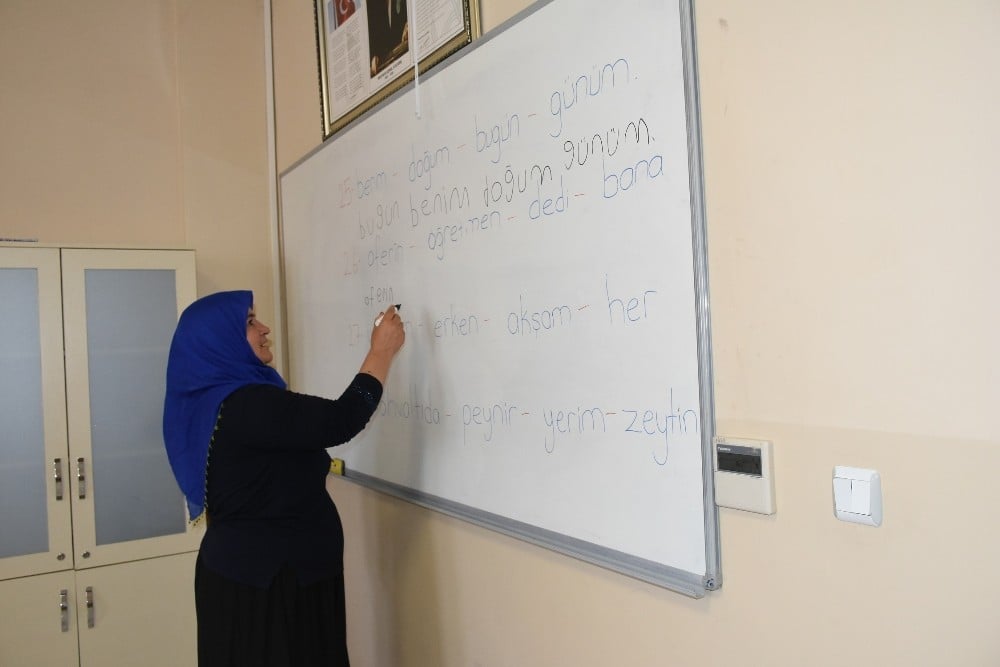 25- benim - doğum - bugün - günüm.
bugün benim doğum günüm.
26- aferin - öğretmen - dedi - bana
aferin
27- - erken - akşam - her
- peynir - yerim - zeytin